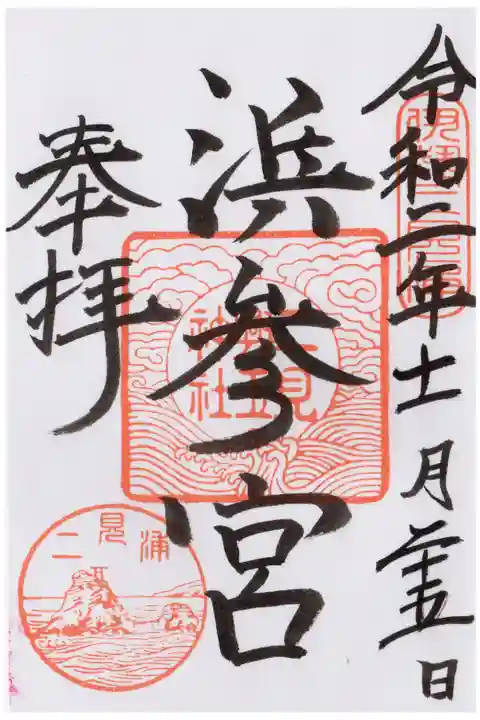 令和二年十一月廿五日
浜参宮
二見興玉神社
奉拝
二見浦